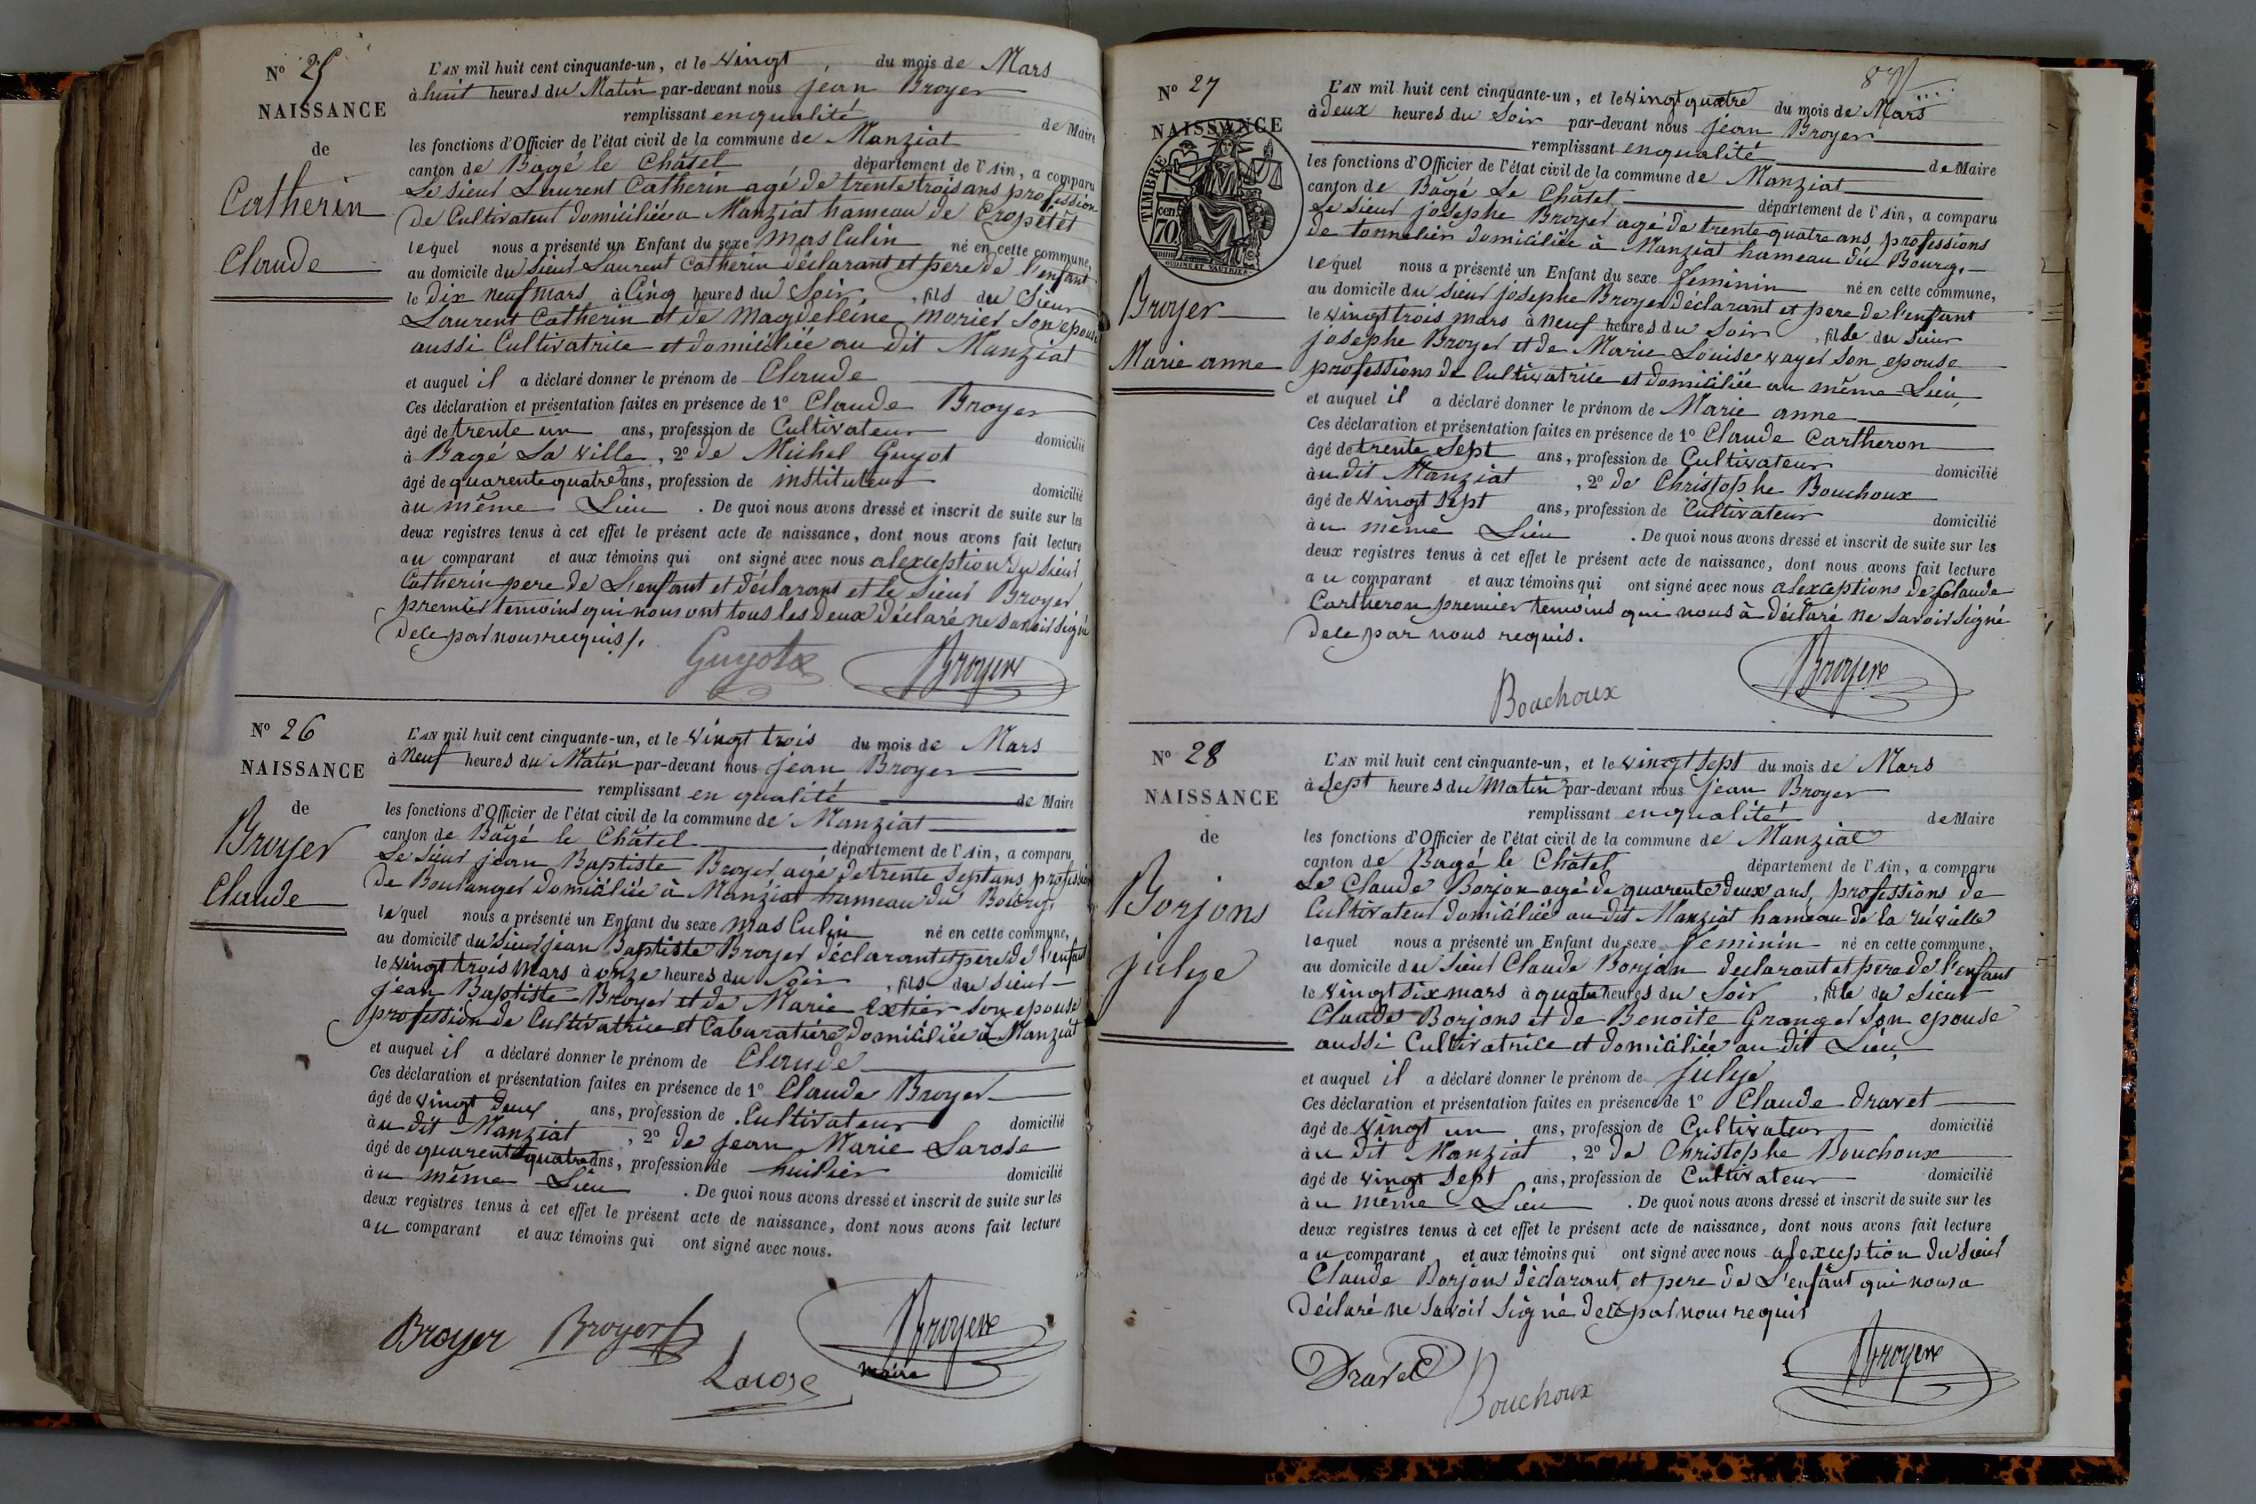 N° 25
NAISSANCE
de
Catherin
Claude
L'AN mil huit cent cinquante-un, et le vingt du mois de Mars
à huit heures du Matin par-devant nous jean Broyer
remplissant en qualité de Maire
les fonctions d'Officier de l'état civil de la commune de Manziat
canton de Bagé le Châtel département de l'Ain, a comparu
Le sieur Laurent Catherin agé de trente trois ans profession
de Cultivateur domiciliée a Manziat hameau de Cropetet
lequel nous a présenté un Enfant du sexe masculin né en cette commune,
au domicile du Sieur Laurent Catherin déclarant et pere de l'enfant
le dix neuf mars à Cinq heures du Soir, fils du Sieur
Laurent Catherin et de Magdeleine morier Son epouse
aussi Cultivatrice et domiciliée au dit Manziat
et auquel il a déclaré donner le prénom de Claude
Ces déclaration et présentation faites en présence de 1° Claude Broyer
âgé de trente un ans, profession de Cultivateur domicilié
à Bagé La ville, 2° de Michel Guyot
âgé de quarente quatre ans, profession de instituteur domicilié
au même Lieu. De quoi nous avons dressé et inscrit de suite sur les
deux registres tenus à cet effet le présent acte de naissance, dont nous avons fait lecture
au comparant et aux témoins qui ont signé avec nous alexception du Sieur
Catherin pere de L'enfant et déclarant et le Sieur Broyer
premier temoins qui nous ont tous les deux déclaré ne savoir signé
dece par nous requis.
Guyot Broyer
N° 26
NAISSANCE
de
Broyer
Claude
L'AN mil huit cent cinquante-un, et le vingt trois du mois de Mars
à Neuf heures du Matin par-devant nous jean Broyer
remplissant en qualité de Maire
les fonctions d'Officier de l'état civil de la commune de Manziat
canton de Bagé le Châtel département de l'Ain, a comparu
Le Sieur jean Baptiste Broyer agé de trente Sept ans profession
de Boulanger domiciliée à Manziat hameau du Bourg,
lequel nous a présenté un Enfant du sexe masculin né en cette commune,
au domicile du Sieur jean Baptiste Broyer déclarant et pere de l'enfant
le vingt trois mars à onze heures du Soir, fils du sieur
jean Baptiste Broyer et de Marie Extier son epouse
profession de Cultivatrice et Cabaratiere domiciliée à Manziat
et auquel il a déclaré donner le prénom de Claude
Ces déclaration et présentation faites en présence de 1° Claude Broyer
âgé de vingt deux ans, profession de Cultivateur domicilié
au dit Manziat, 2° de Jean Marie Larose
âgé de quarente quatre ans, profession de huilier domicilié
au même Lieu. De quoi nous avons dressé et inscrit de suite sur les
deux registres tenus à cet effet le présent acte de naissance, dont nous avons fait lecture
au comparant et aux témoins qui ont signé avec nous.
Broyer Broyer Larose Broyer
maire
N° 27
NAISSANCE
TIMBRE
70 cen
Broyer
Marie anne
L'AN mil huit cent cinquante-un, et le vingt quatre du mois de Mars
à deux heures du Soir par-devant nous jean Broyer
remplissant en qualité de Maire
les fonctions d'Officier de l'état civil de la commune de Manziat
canton de Bagé Le Châtel département de l'Ain, a comparu
Le Sieur josephe Broyer agé de trente quatre ans professions
de tonnelier domiciliée à Manziat hameau du Bourg.
lequel nous a présenté un Enfant du sexe feminin né en cette commune,
au domicile du Sieur josephe Broyer déclarant et pere de l'enfant
le vingt trois mars à Neuf heures du Soir, fille du sieur
josephe Broyer et de Marie Louise vayer son epouse
professions de Cultivatrice et domiciliée au même Lieu
et auquel il a déclaré donner le prénom de Marie anne
Ces déclaration et présentation faites en présence de 1° Claude Cartheron
âgé de trente Sept ans, profession de Cultivateur domicilié
au dit Manziat, 2° de Christophe Bouchoux
âgé de vingt sept ans, profession de Cultivateur domicilié
au même Lieu. De quoi nous avons dressé et inscrit de suite sur les
deux registres tenus à cet effet le présent acte de naissance, dont nous avons fait lecture
au comparant et aux témoins qui ont signé avec nous alexceptions de Claude
Cartheron premier temoins qui nous à déclaré ne savoir signé
dece par nous requis.
Bouchoux Broyer
N° 28
NAISSANCE
de
Borjons
julye
L'AN mil huit cent cinquante-un, et le vingt sept du mois de Mars
à Sept heures du Matin par-devant nous jean Broyer
remplissant en qualité de Maire
les fonctions d'Officier de l'état civil de la commune de Manziat
canton de Bagé le Châtel département de l'Ain, a comparu
Le Claude Borjon agé de quarente deux ans, professions de
Cultivateur domiciliée au dit Manziat hameau de la
lequel nous a présenté un Enfant du sexe feminin né en cette commune,
au domicile du Sieur Claude Borjon declarant et pere de l'enfant
le vingt six mars à quatre heures du Soir, fille du Sieur
Claude Borjons et de Benoite Granger Son epouse
aussi Cultivatrice et domiciliée au dit Lieu
et auquel il a déclaré donner le prénom de julye
Ces déclaration et présentation faites en présence de 1° Claude dravet
âgé de vingt un ans, profession de Cultivateur domicilié
au dit Manziat, 2° de Christophe Bouchoux
âgé de vingt Sept ans, profession de Cultivateur domicilié
au même Lieu. De quoi nous avons dressé et inscrit de suite sur les
deux registres tenus à cet effet le présent acte de naissance, dont nous avons fait lecture
au comparant et aux témoins qui ont signé avec nous alexception du Sieur
Claude Borjons déclarant et pere de L'enfant qui nous a
déclaré ne savoir signé dece par nous requis
Dravet Bouchoux Broyer